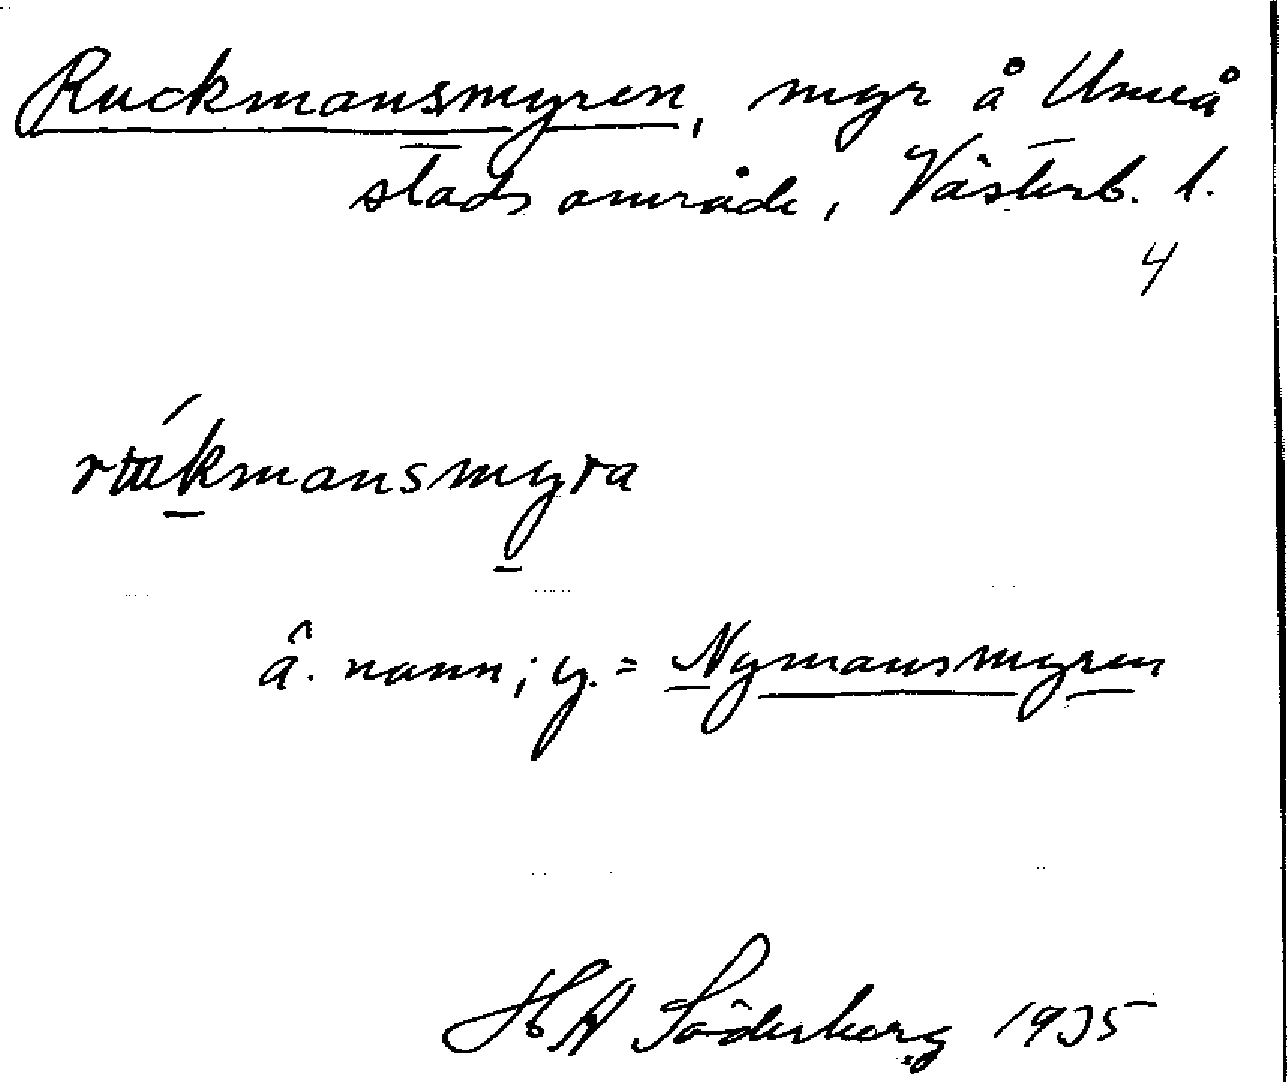 Ruckmansmyren, myr å Umeå
stadsområde, Västerb. l.
4
kmansmyra
â. namn; y. = Nymansmyren
HA Söderberg 1935